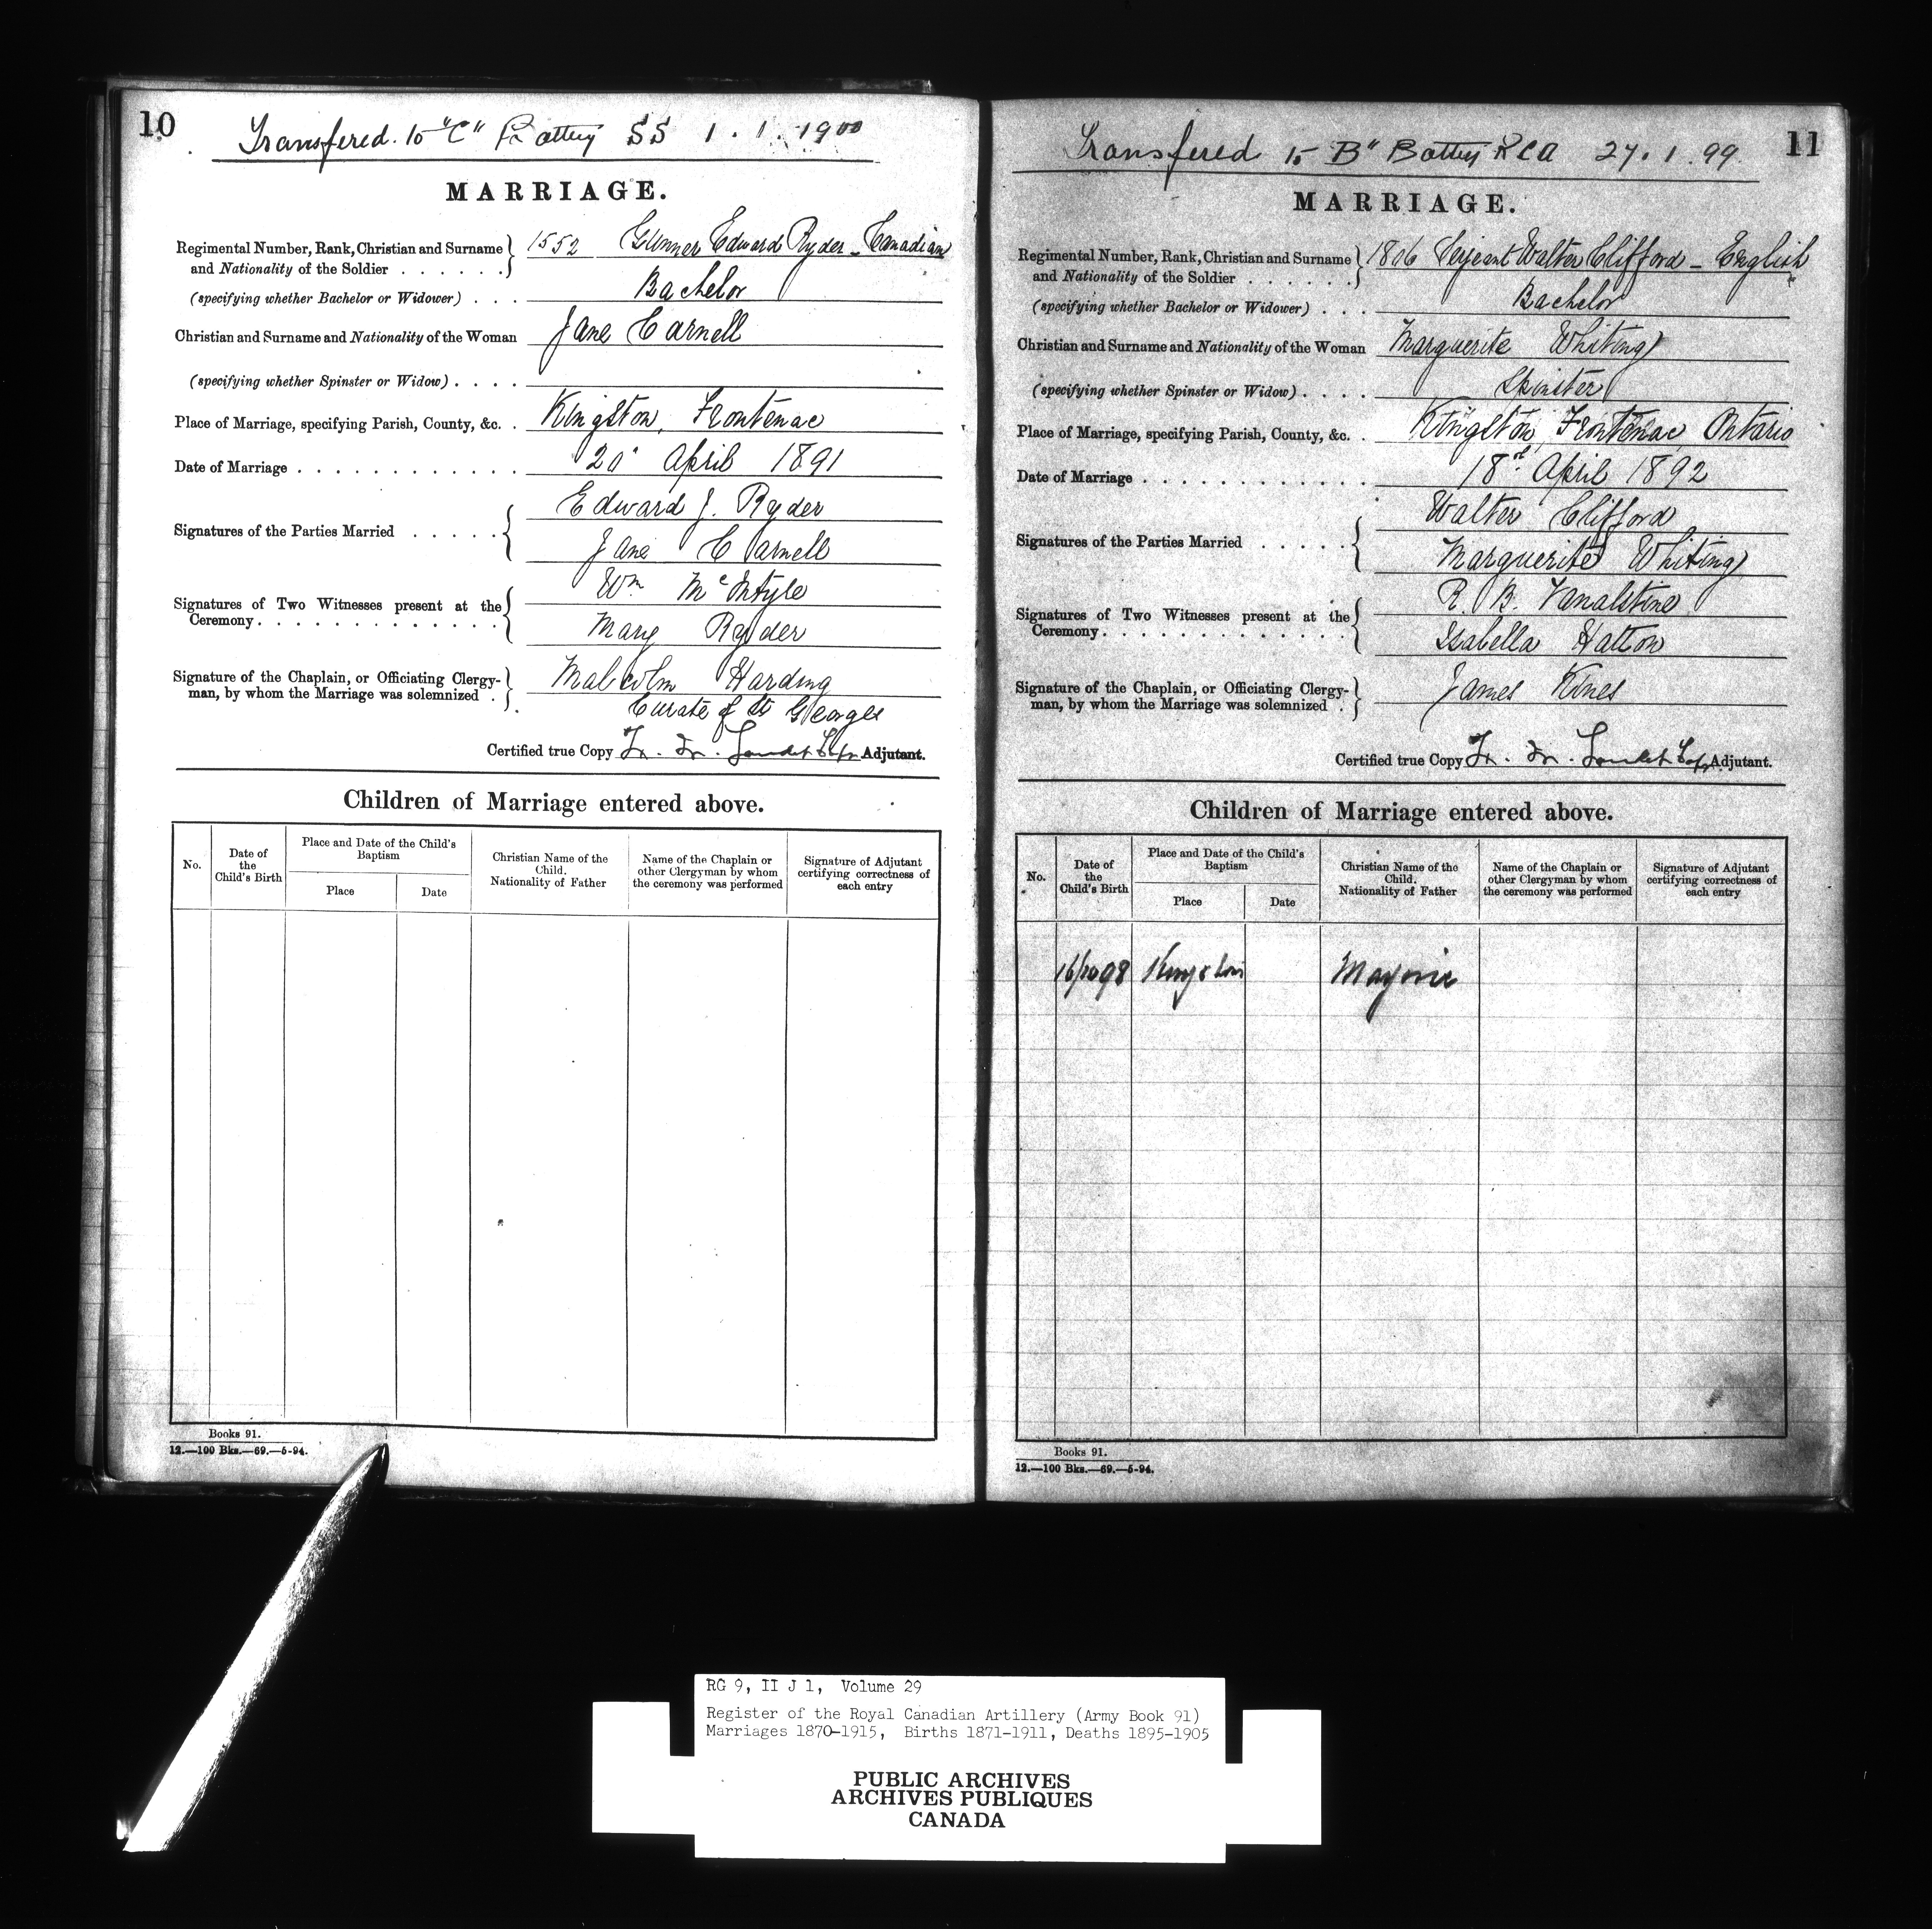 10
Transfered to "C" Battery SS 1.1.1900
MARRIAGE.
Regimental Number, Rank, Christian and Surname and Nationality of the Soldier . . . . . . . 1552 Gunner Edward Ryder - Canadian
(specifying whether Bachelor or Widower) . . . Bachelor
Christian and Surname and Nationality of the Woman Jane Carnell
(specifying whether Spinster or Widow) . . . .
Place of Marriage, specifying Parish, County, &c. . Kingston, Frontenac
Date of Marriage . . . . . . . . . . . . . 20 April 1891
Signatures of the Parties Married . . . . . Edward J. Ryder
Jane Carnell
Signatures of Two Witnesses present at the Ceremony . . . . . . . . . . . . . Wm
Mary Ryder
Signature of the Chaplain, or Officiating Clergy-
man, by whom the Marriage was solemnized . Malcolm Harding
Curate of St Georges
Certified true Copy Adjutant.
Children of Marriage entered above.
No.
Date of the Child's Birth
Place and Date of the Child's Baptism
Place
Date
Christian Name of the Child. Nationality of Father
Name of the Chaplain or other Clergyman by whom the ceremony was performed
Signature of Adjutant certifying correctness of each entry
Books 91.
12.—100 Bks.—69.—5-94.
11
Transfered to "B" Battery RCA 27.1.99.
MARRIAGE.
Regimental Number, Rank, Christian and Surname and Nationality of the Soldier . . . . . . 1806 Serjeant Walter Clifford - English
(specifying whether Bachelor or Widower) . . . Bachelor
Christian and Surname and Nationality of the Woman Marguerite Whiting
(specifying whether Spinster or Widow) . . . . Spinster
Place of Marriage, specifying Parish, County, &c. . Kingston, Frontenac Ontario
Date of Marriage . . . . . . . . . . . . 18th April 1892
Signatures of the Parties Married . . . . . Walter Clifford
Marguerite Whiting
Signatures of Two Witnesses present at the Ceremony . . . . . . . . . . . . . R. B. Vanalstine
Isabella Hatton
Signature of the Chaplain, or Officiating Clergy-
man, by whom the Marriage was solemnized . James Kines
Certified true Copy Adjutant.
Children of Marriage entered above.
No.
Date of the Child's Birth
Place and Date of the Child's Baptism
Place
Date
Christian Name of the Child. Nationality of Father
Name of the Chaplain or other Clergyman by whom the ceremony was performed
Signature of Adjutant certifying correctness of each entry
16/10 98 Kingston Marjorie
Books 91.
12.—100 Bks.—69.—5-94.
RG 9, II J 1, Volume 29
Register of the Royal Canadian Artillery (Army Book 91)
Marriages 1870-1915, Births 1871-1911, Deaths 1895-1905
PUBLIC ARCHIVES
ARCHIVES PUBLIQUES
CANADA